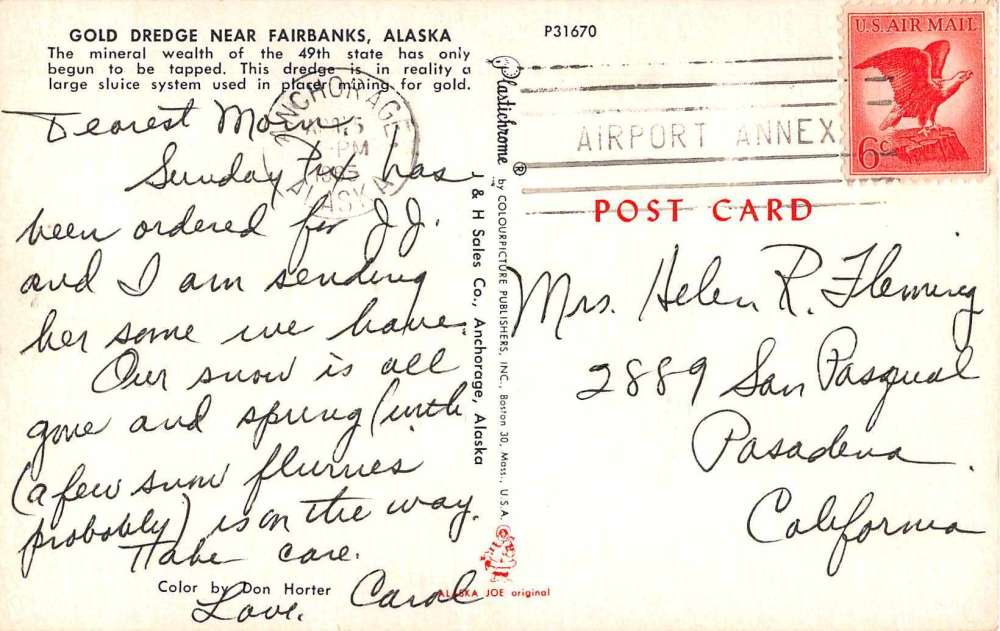 GOLD DREDGE NEAR FAIRBANKS, ALASKA
The mineral wealth of the 49th state has only
begun to be tapped. This dredge is in reality a
large sluice system used in placer mining for gold.
P31670
U.S. AIR MAIL
6c
ANCHORAGE
PM
ALASKA
AIRPORT ANNEX
Dearest Mom,
Sunday has
been ordered for J.J.
and I am sending
her some we have.
Our snow is all
gone and spring (with
(a few snow flurries
probably) is on the way.
Take care.
Love, Carol
Color by Don Horter
Plastichrome ® by COLOURPICTURE PUBLISHERS, INC., Boston 30, Mass., U.S.A.
& H Sales Co., Anchorage, Alaska
ALASKA JOE original
POST CARD
Mrs. Helen R. Fleming
2889 San Pasqual
Pasadena.
California